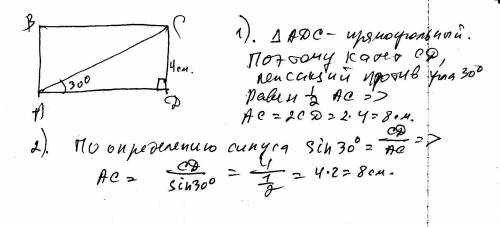 B
C
A
D
30°
4 см.
1). △ ADC - прямоугольный.
Поэтому катет CD,
лежащий против угла 30°
равен 1/2 AC =>
AC = 2CD = 2·4 = 8 см.
2). По определению синуса sin 30° = CD/AC =>
AC = CD/sin 30° = 4/(1/2) = 4·2 = 8 см.